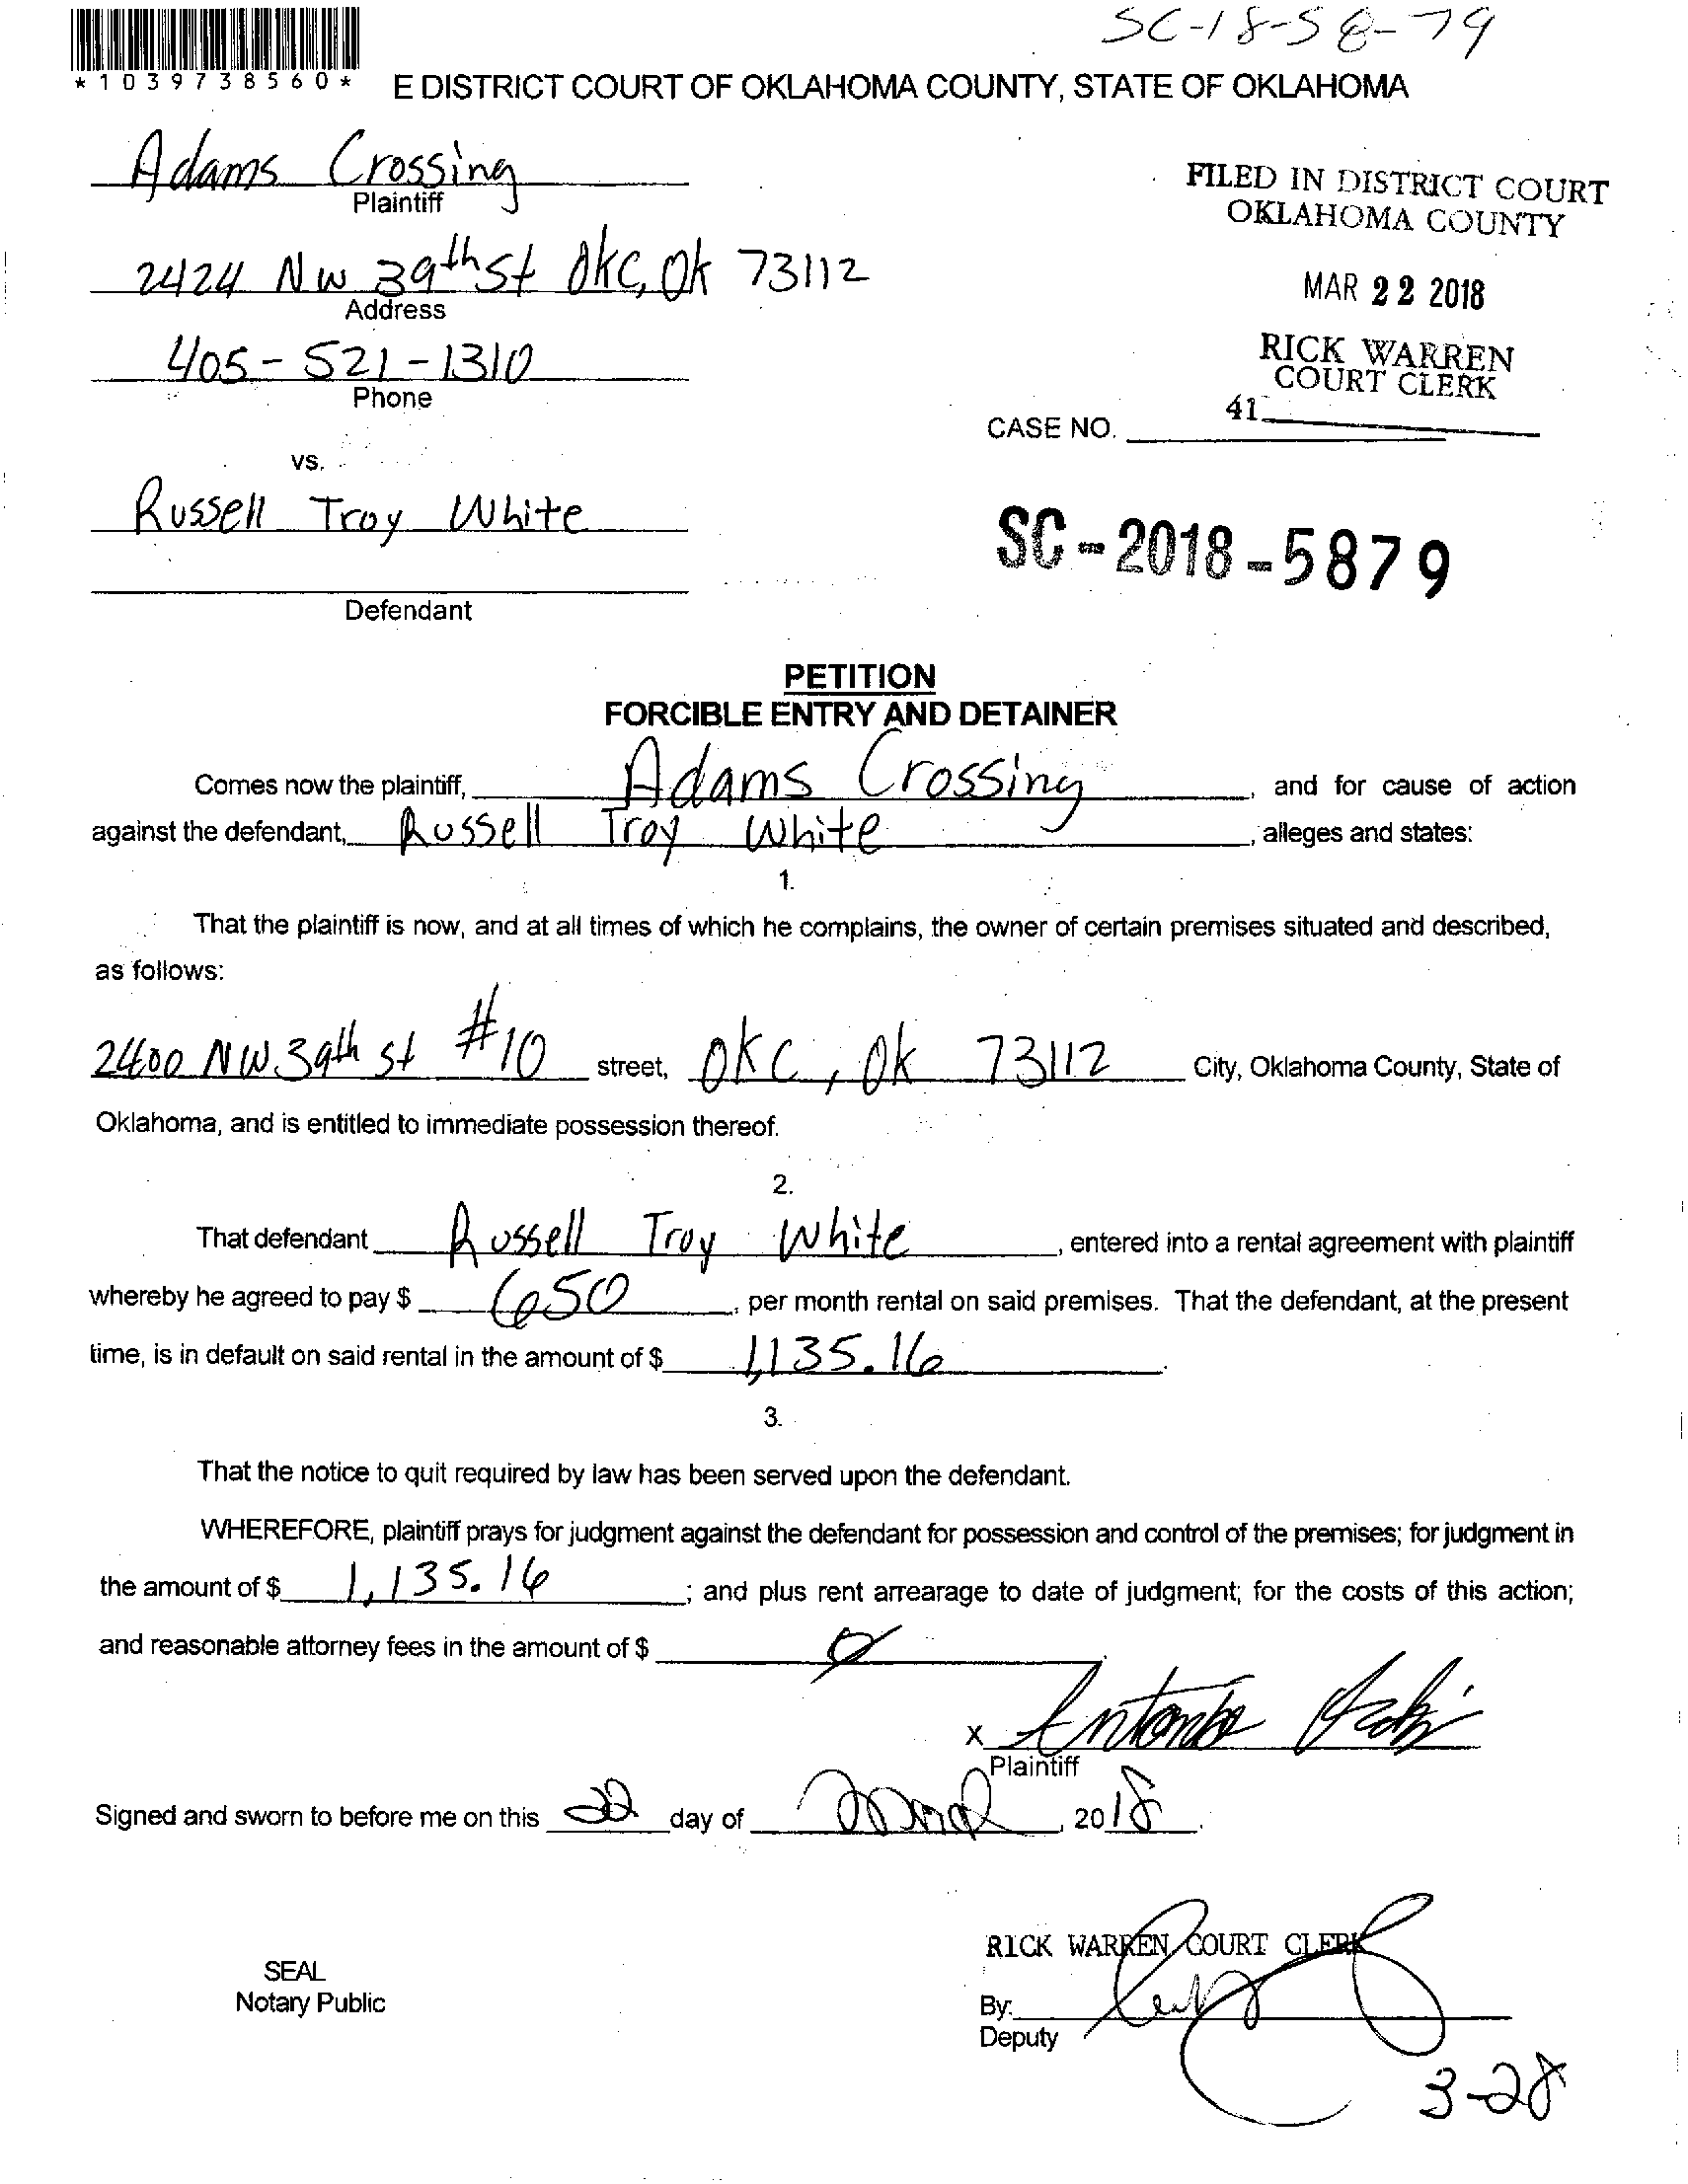 SC-18-58-79
*1039738560*
E DISTRICT COURT OF OKLAHOMA COUNTY, STATE OF OKLAHOMA
Adams Crossing
Plaintiff
FILED IN DISTRICT COURT
OKLAHOMA COUNTY
2424 NW 39th St OKC, OK 73112
Address
MAR 22 2018
405-521-1310
Phone
RICK WARREN
COURT CLERK
41
CASE NO.
vs.
Russell Troy White
SC-2018-5879
Defendant
PETITION
FORCIBLE ENTRY AND DETAINER
Comes now the plaintiff, Adams Crossing, and for cause of action
against the defendant, Russell Troy White, alleges and states:
1.
That the plaintiff is now, and at all times of which he complains, the owner of certain premises situated and described,
as follows:
2400 NW 39th st #10 street, OKC, OK 73112 City, Oklahoma County, State of
Oklahoma, and is entitled to immediate possession thereof.
2.
That defendant Russell Troy White, entered into a rental agreement with plaintiff
whereby he agreed to pay $ 650, per month rental on said premises. That the defendant, at the present
time, is in default on said rental in the amount of $ 1,135.16.
3.
That the notice to quit required by law has been served upon the defendant.
WHEREFORE, plaintiff prays for judgment against the defendant for possession and control of the premises; for judgment in
the amount of $ 1,135.16; and plus rent arrearage to date of judgment; for the costs of this action;
and reasonable attorney fees in the amount of $ 0
X
Plaintiff
Signed and sworn to before me on this 22 day of March, 2018.
RICK WARREN COURT CLERK
SEAL
Notary Public
By:
Deputy
3-28